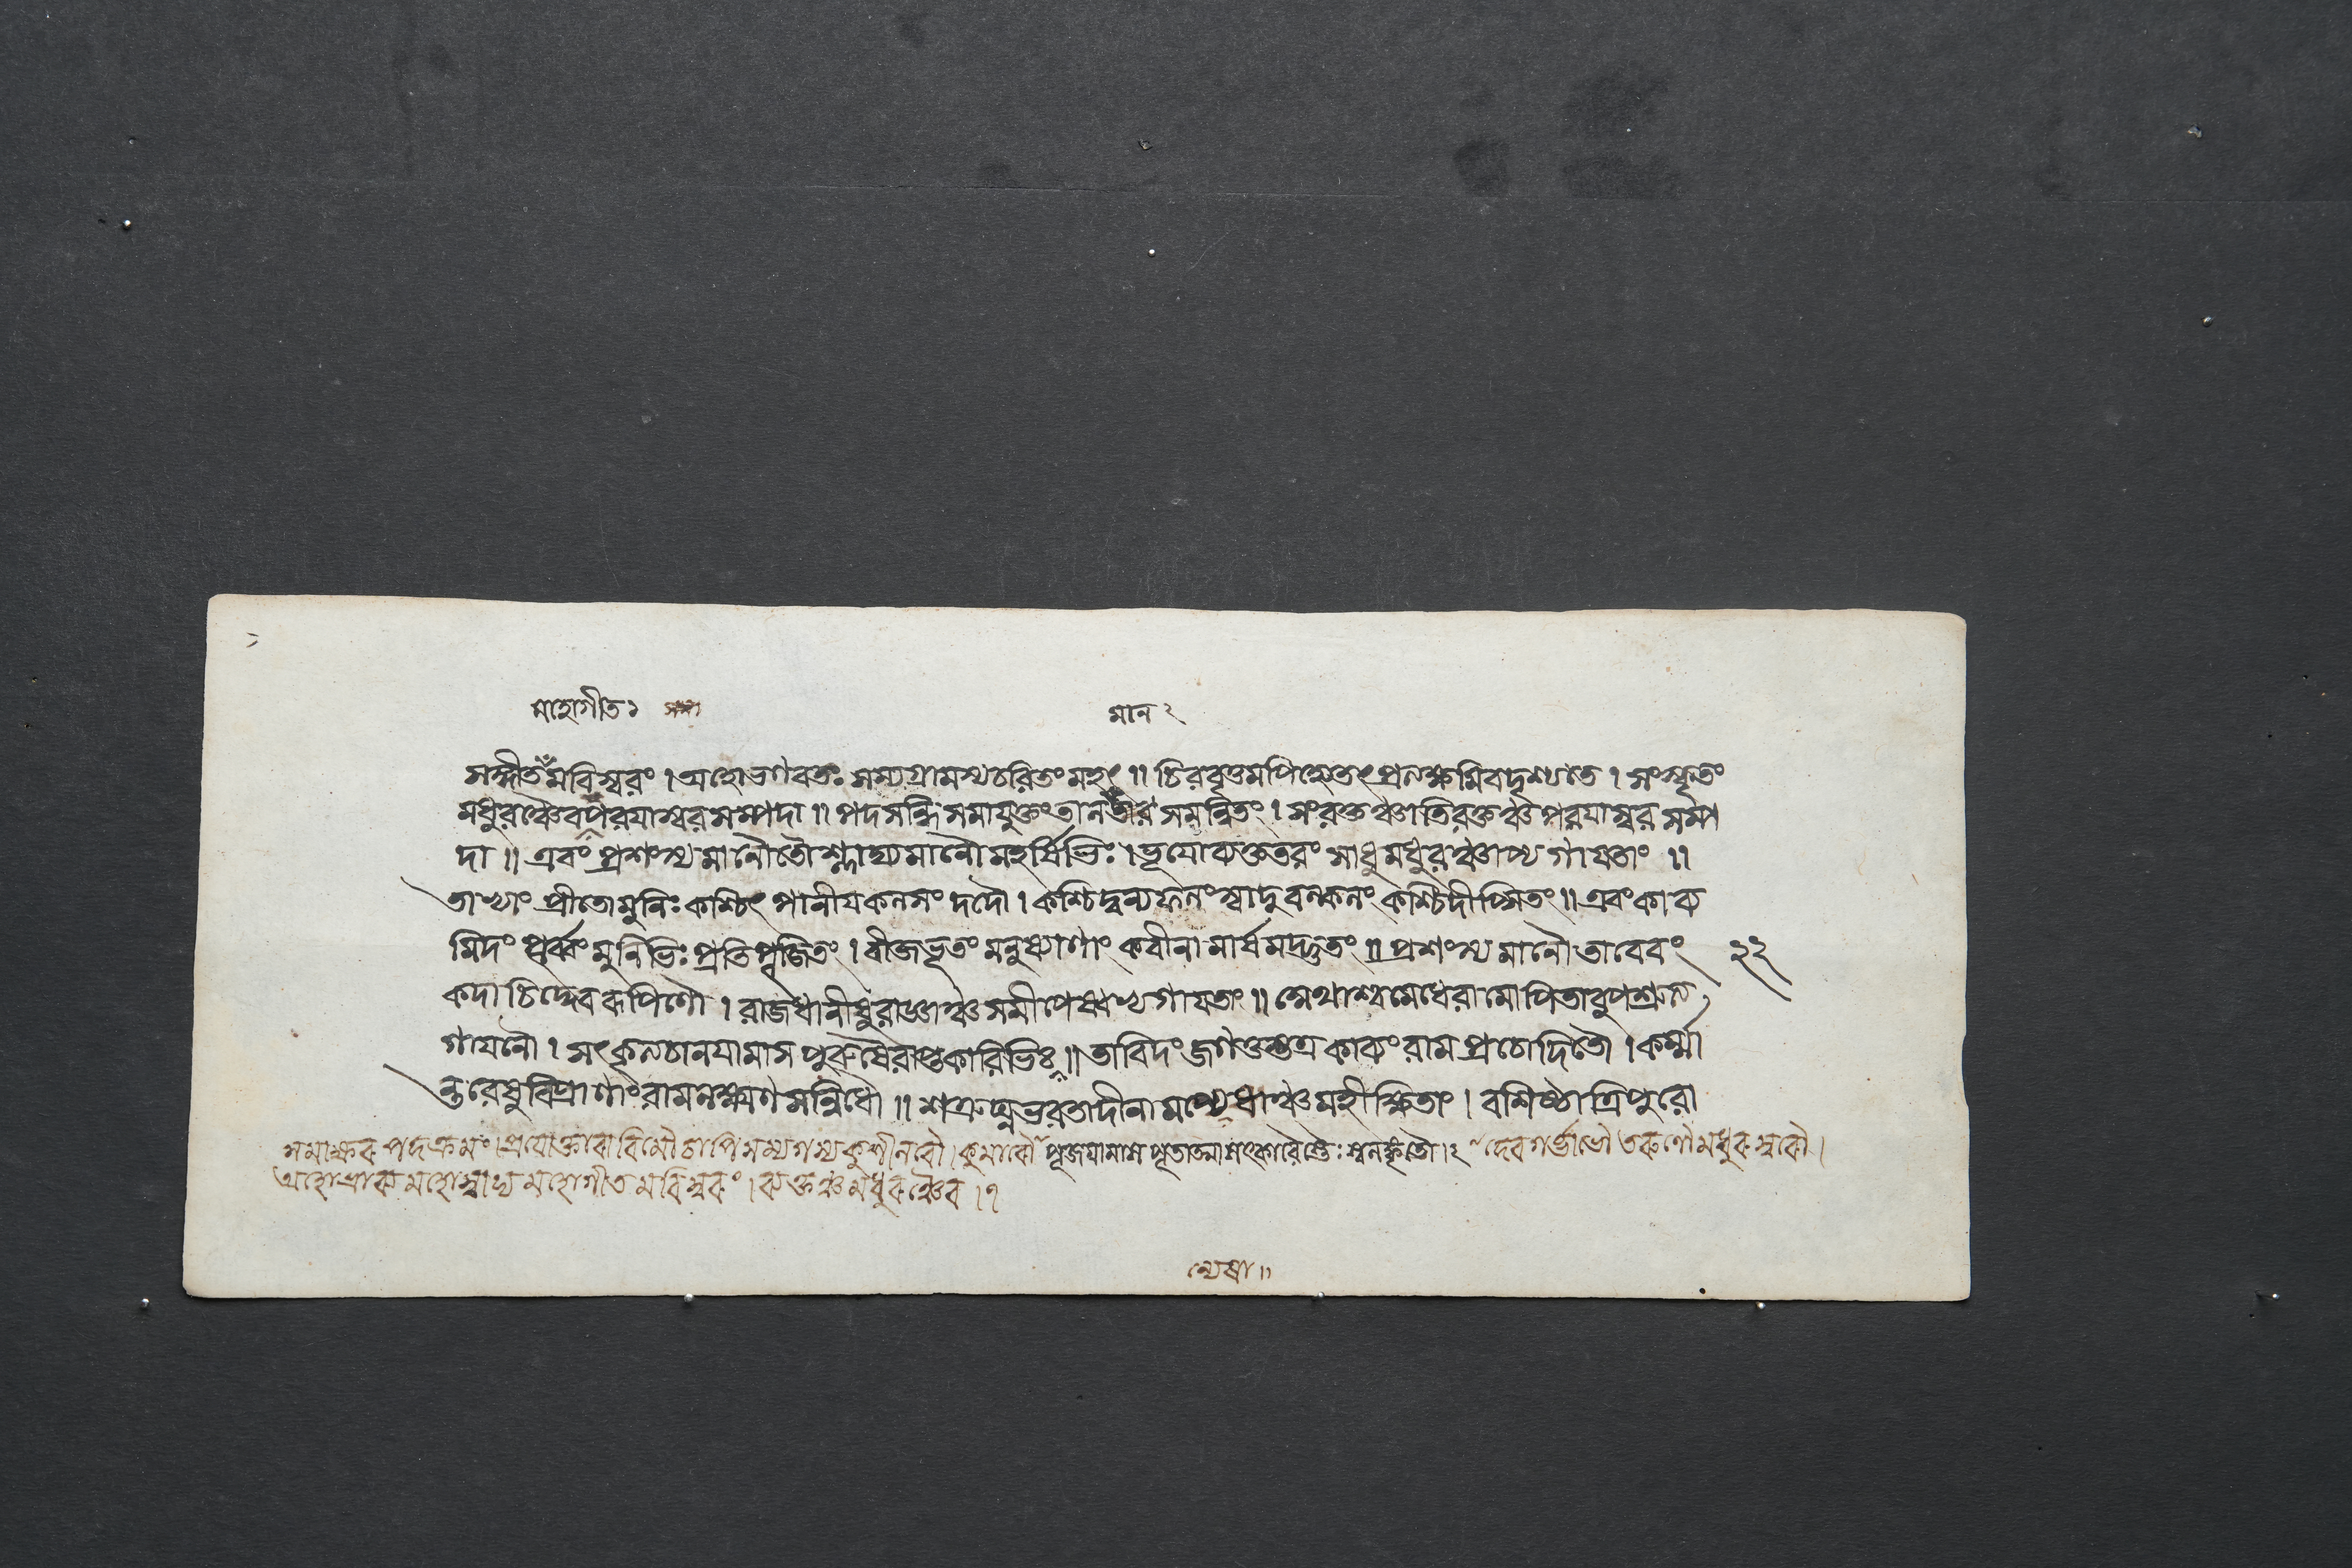 মহোগীত১
মান২
সঙ্গীতমবিস্বরং । অহোভগবতঃ সম্যগ্রামস্যচরিতংমহৎ ॥ চিরবৃত্তমপিহ্যেতৎ প্রত্যক্ষমিবদৃশ্যতে । সংস্কৃতং
মধুরঞ্চৈবপরযাস্বরসম্পদা ॥ পদসন্ধি সমাযুক্তং তান সমন্বিতং । সংরক্তঞ্চাতিরক্তঞ্চ পরযাস্বর সম্প
দা ॥ এবং প্রশংস্যমানৌতৌশ্লাঘ্যমানৌমহর্ষিভিঃ । ভূযোব্যক্ততরং সাধুমধুরঞ্চাপ্যগাযতাং ॥
তাভ্যাং প্রীতোমুনিঃ কশ্চিৎ পানীযকলসং দদৌ । কশ্চিদ্বন্যফলংস্বাদুবল্কলং কশ্চিদীপ্সিতং ॥ এবংকাব্য
মিদং পূর্ব্বংমুনিভিঃ প্রতিপূজিতং । বীজভূতং মনুষ্যাণাং কবীনামার্ষমদ্ভুতং ॥ প্রশংস্যমানৌ তাবেবং ২২
কদাচিদ্দেবরূপিণৌ । রাজধানীষুরাজ্ঞাঞ্চ সমীপেষ্বভ্যগাযতাং ॥ মেথাশ্বমেধেরামোপিতাবুপশ্রুত্য
গাযনৌ । সৎকৃত্যচানযামাস পুরুষৈরাপ্তকারিভিঃ ॥ তাবিদং জগতুস্তত্র কাব্যং রাম প্রচোদিতৌ । কর্ম্মা
ন্তরেষুবিপ্রাণাং রামলক্ষ্মণ সন্নিধৌ ॥ শত্রুঘ্নভরতাদীনামন্যেষাঞ্চমহীক্ষিতাং । বশিষ্ঠাত্রিপুরো
সমাক্ষর পদক্রমং । প্রযোক্তারাবিমৌচাপি সম্যগস্য কুশীলবৌ । কুমারৌ পূজযামাস পূতাত্মা সৎকারৈস্তৈঃ স্বলঙ্কৃতৌ । ২ দেবগর্ভাভৌ তরুণৌমধুরস্বরৌ ।
অহোশ্রাব্যমহোশ্লাঘ্যমহোগীতমবিস্বরং । রক্তঞ্চমধুরঞ্চৈব । ১
ন্যেষা ॥